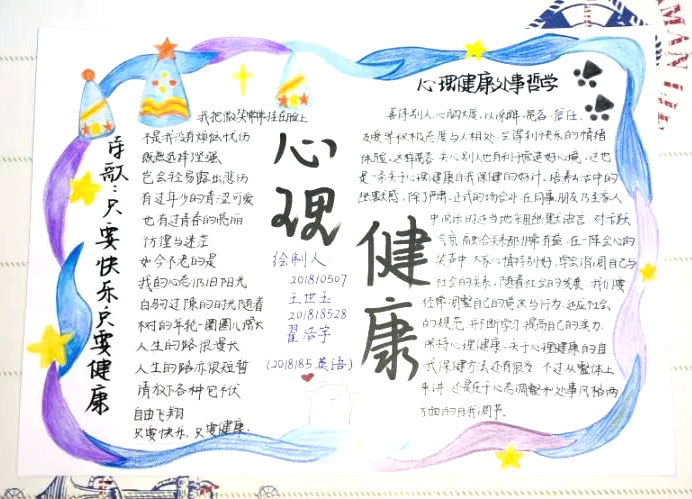 诗歌：只要快乐只要健康
我把微笑常常挂在脸上
不是我没有烦恼忧伤
既然选择坚强
怎会轻易露出悲伤
有过年少的青涩可爱
也有过青春的亮丽
彷徨与迷茫
如今不老的是
我的心态仍旧阳光
白驹过隙的时光随着
树的年轮一圈圈儿增长
人生的路很漫长
人生的路亦很短暂
请放下各种包袱
自由飞翔
只要快乐，只要健康.
心理
健康
绘制人：
201810507
王世玉
201818528
翟浩宇
(2018185英语)
心理健康处事哲学
善待别人，心胸大度，以谅解、宽容、信任、
友爱等积极态度与人相处，会得到快乐的情绪
体验，这样宽容、关心别人也有利于营造好心境，这也
是一条关于心理健康自我保健的好计，培养生活中的
幽默感，除了严肃、正式的场合外，在同事、朋友乃至家人
中间乐时适当地利用幽默语言，对活跃
气氛，融洽关系都非常有益，在一阵会心的
笑声中，大家心情特别好，学会协调自己与
社会的关系，随着社会的发展，我们要
经常调整自己的意识与行为，适应社会
的规范，并不断学习，提高自己的实力，
保持心理健康，关于心理健康的自
我保健方法还有很多，不过从整体上
来讲，还是在于心态调整和处事风格两
方面的自我调节。
MAN